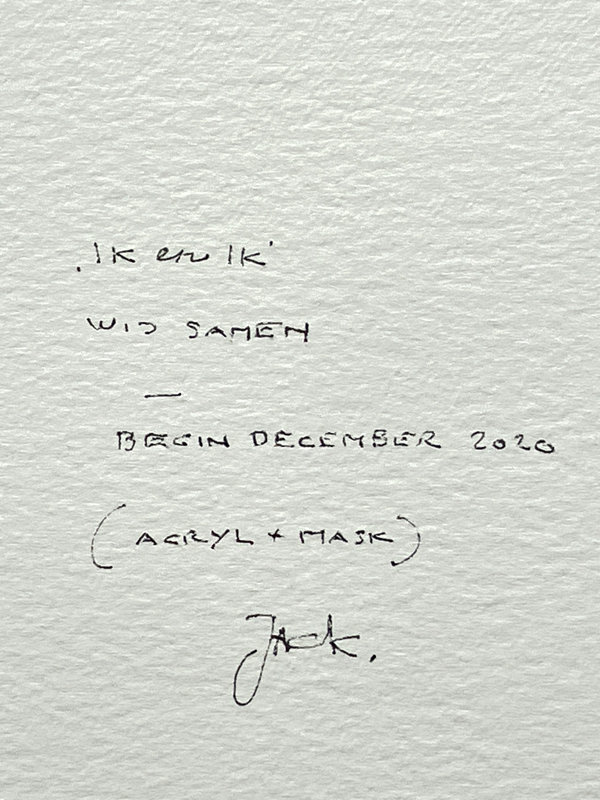 ‚IK en IK’
WIJ SAMEN
—
BEGIN DECEMBER 2020
(ACRYL + MASK)
Jack.